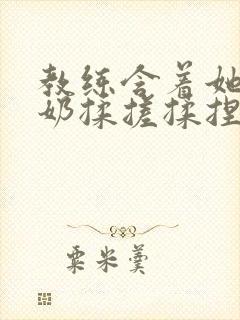 教练含着她
奶揉搓揉捏
粟米羹